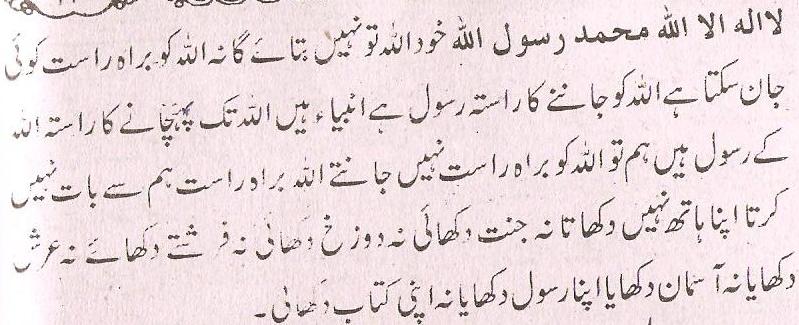 لا الہ الا اللہ محمد رسول اللہ خود اللہ تو نہیں بتائے گا نہ اللہ کو براہ راست کوئی
جان سکتا ہے اللہ کو جاننے کا راستہ رسول ہے انبیاء ہیں اللہ تک پہنچانے کا راستہ اللہ
کے رسول ہیں ہم تو اللہ کو براہ راست نہیں جانتے اللہ براہ راست ہم سے بات نہیں
کرتا اپنا ہاتھ نہیں دکھاتا نہ جنت دکھائی نہ دوزخ دکھائی نہ فرشتے دکھائے نہ عرش
دکھایا نہ آسمان دکھایا اپنا رسول دکھایا نہ اپنی کتاب دکھائی۔